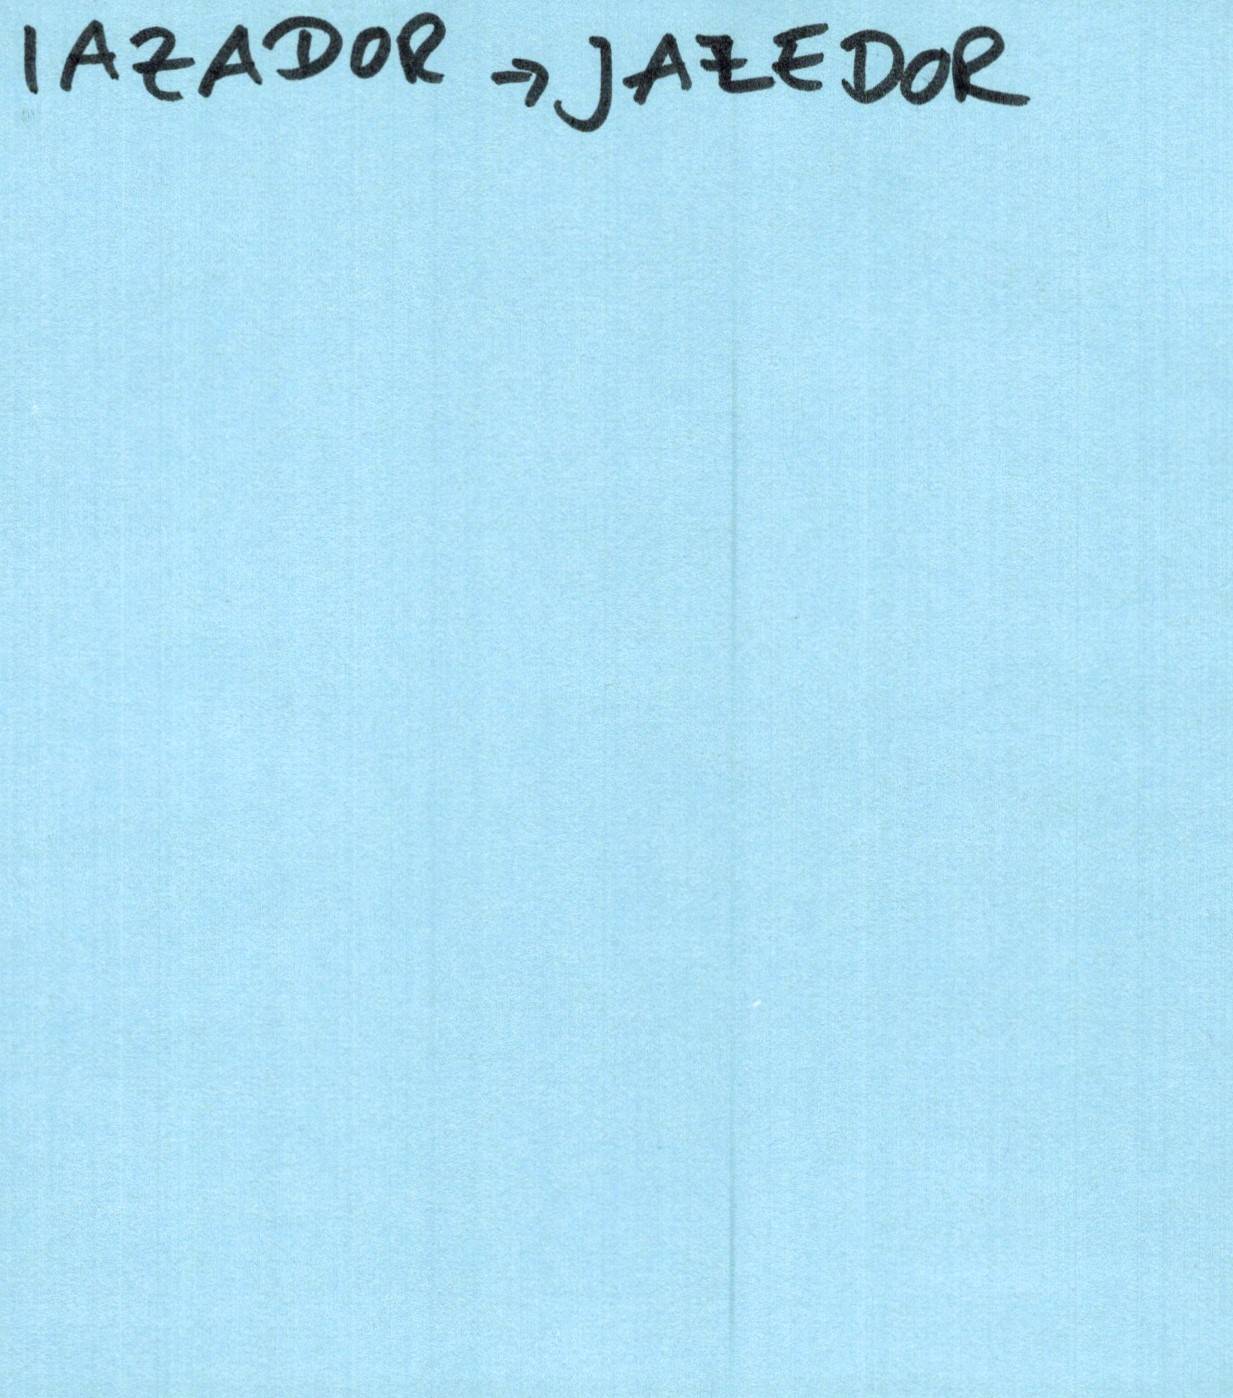 IAZADOR → JAZEDOR